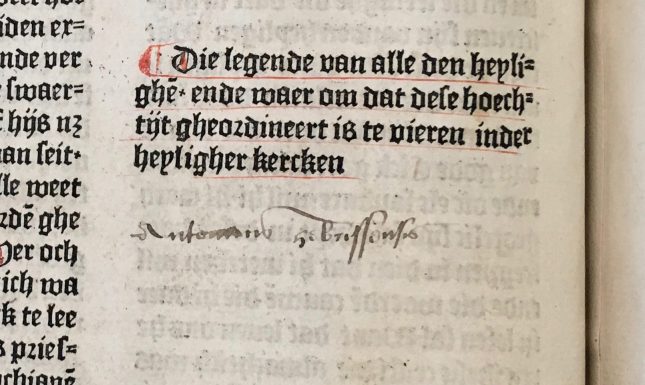 iden ex=
nde ver
swaer=
hijs uz
an seit.
lle weet
rdē ghe
Der och
ich wa
k te lee
s pries=
Die legende van alle den heyli=
ghē. ende waer om dat dese hoech=
tijt gheordineert is te vieren inder
heyligher kercken
Antonius